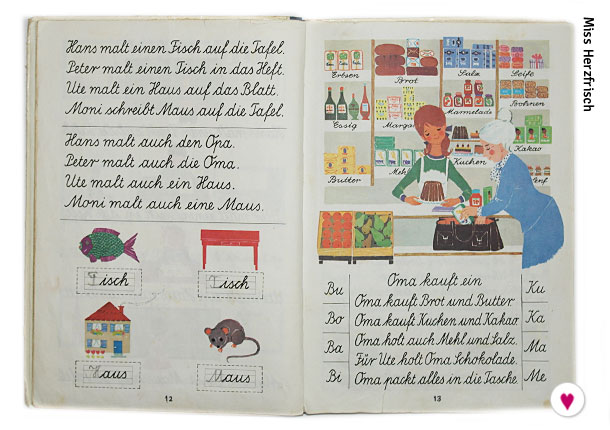 Hans malt einen Fisch auf die Tafel.
Peter malt einen Tisch in das Heft.
Ute malt ein Haus auf das Blatt.
Moni schreibt Maus auf die Tafel.
Hans malt auch den Opa.
Peter malt auch die Oma.
Ute malt auch ein Haus.
Moni malt auch eine Maus.
Fisch Tisch
Haus Maus
12
Erbsen Brot Salz Seife
Marmelade Bohnen
Essig Marga
Kuchen Kakao
Butter Meh enf
Oma kauft ein
Bu Oma kauft Brot und Butter Ku
Bo Oma kauft Kuchen und Kakao Ka
Ba Oma holt auch Mehl und Salz. Ma
Für Ute holt Oma Schokolade.
Bi Oma packt alles in die Tasche Me
13
Miss Herzfrisch